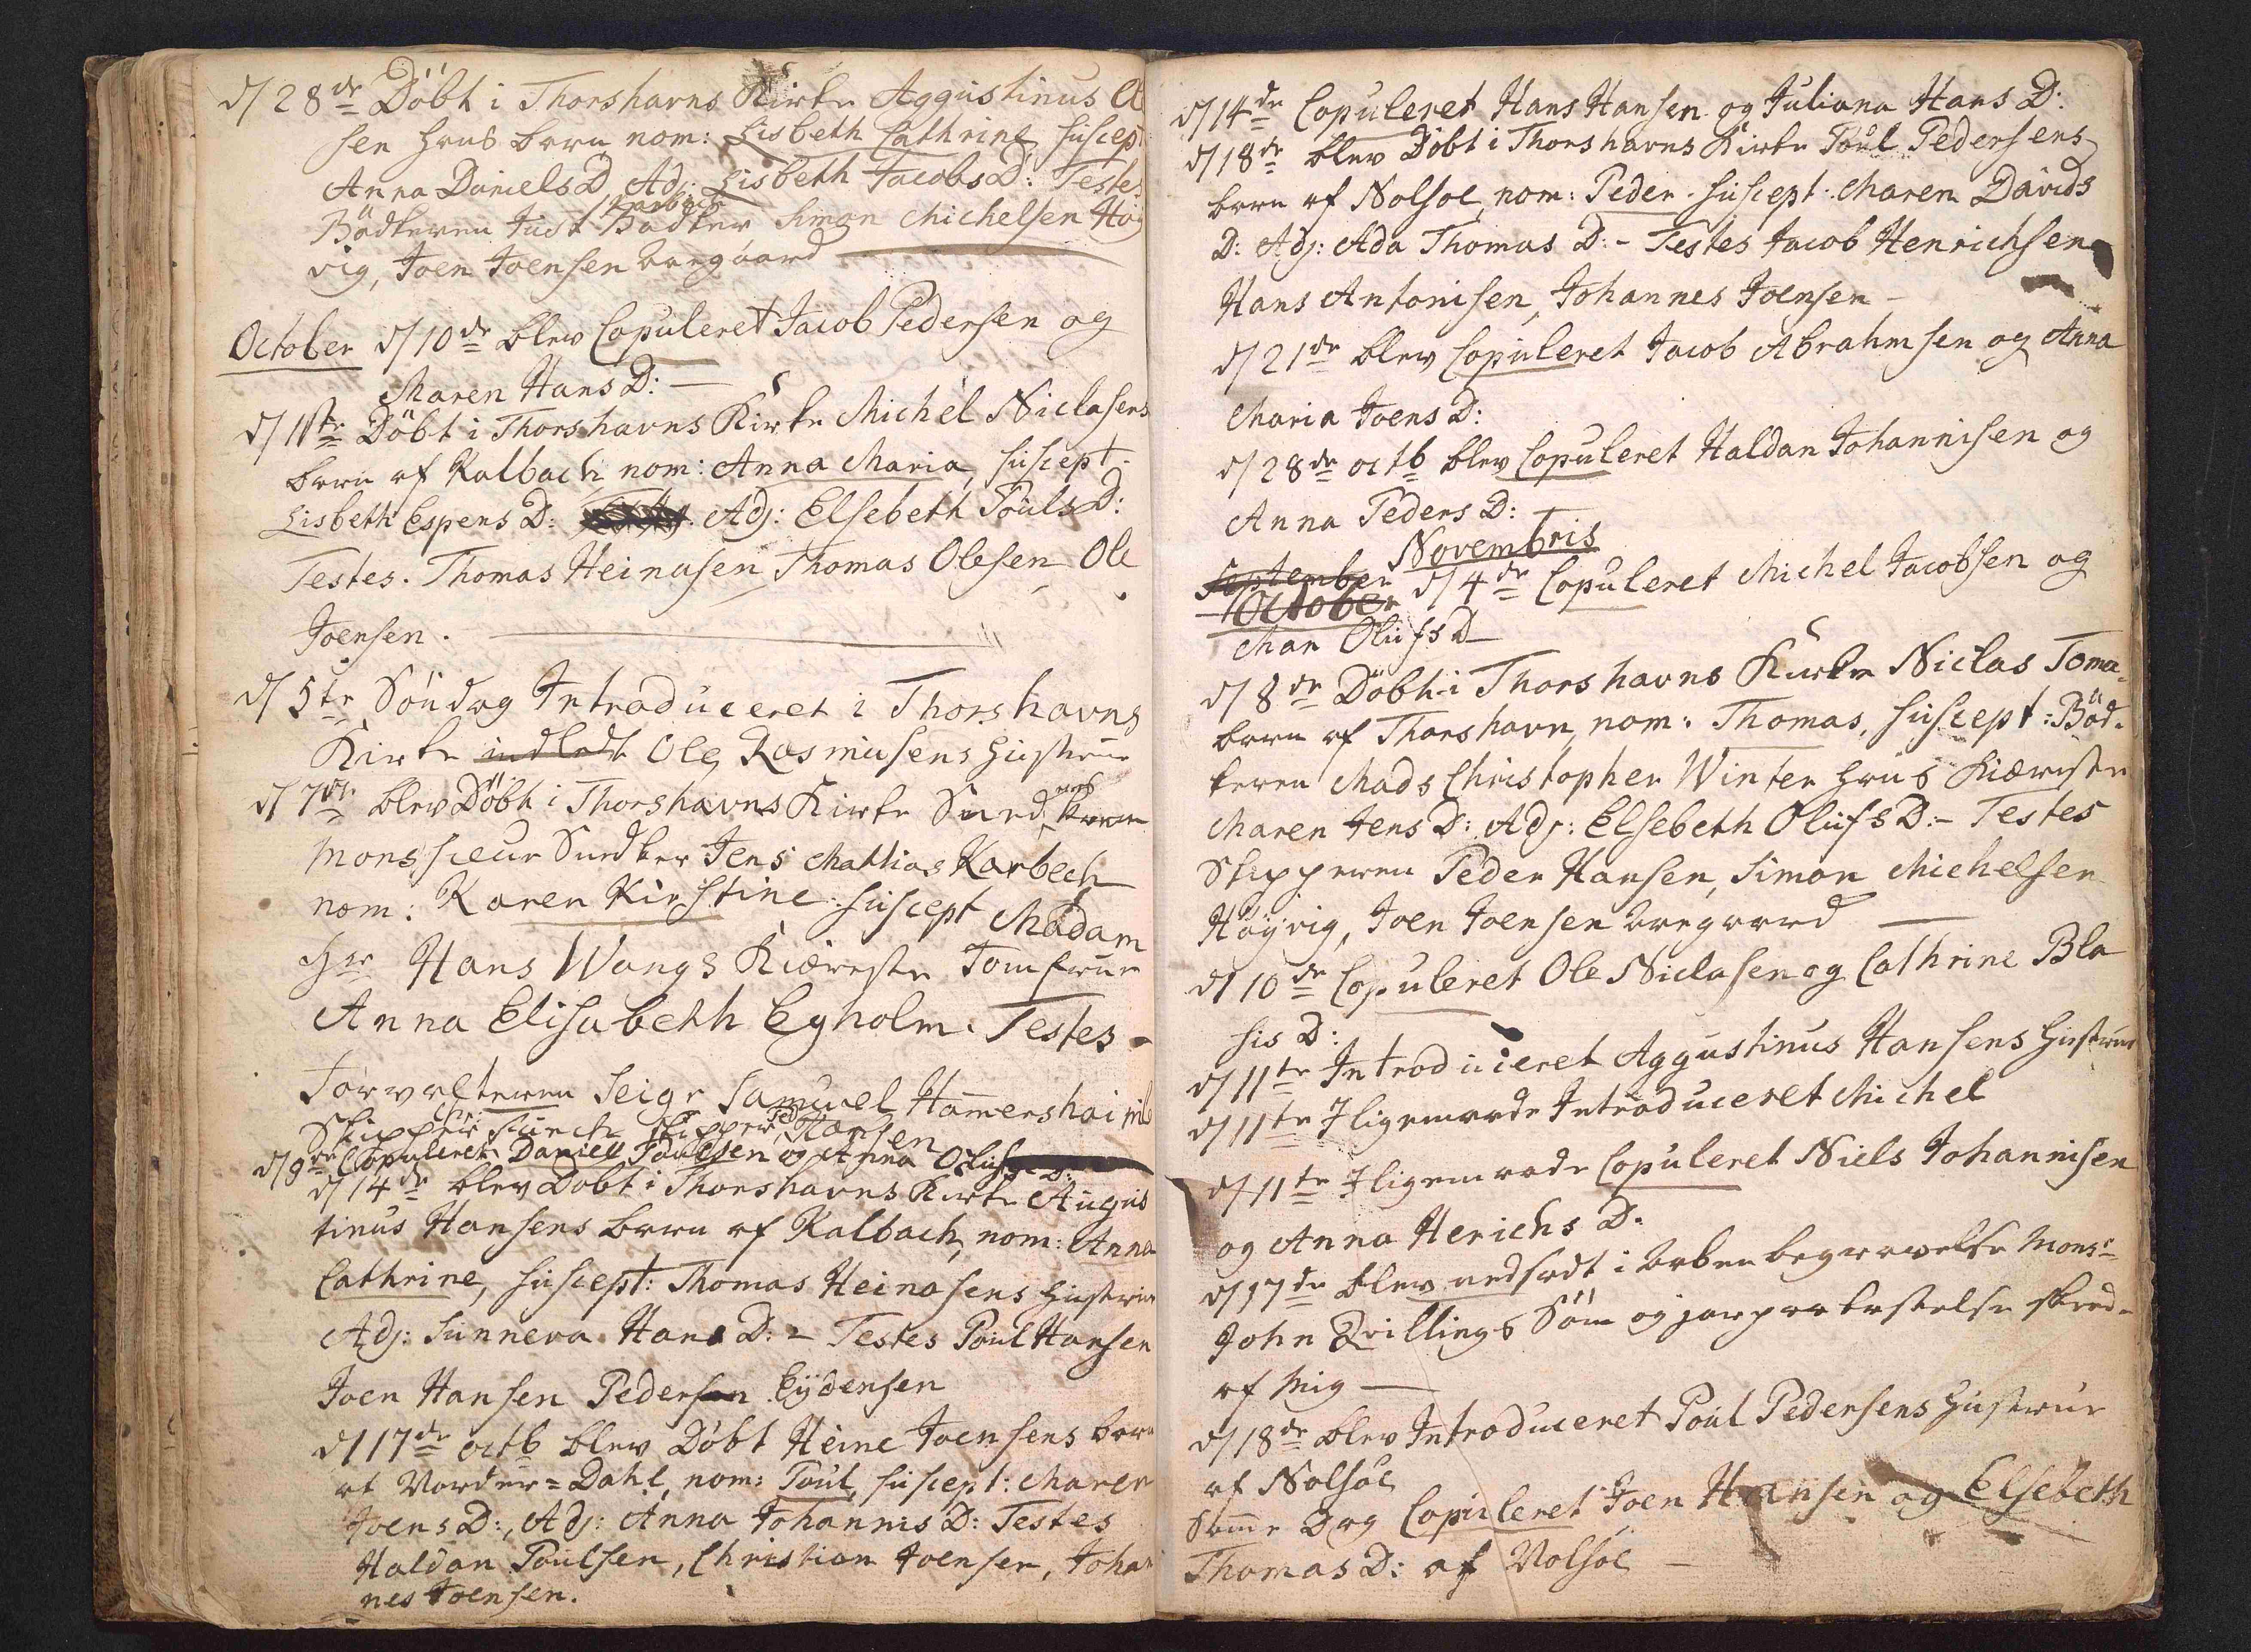 d/ 28de Döbt i Thorshavns Kirke Aggustinus
sen hans barn nom: Lisbeth Cathrine suscept
Anna Daniels D. Adj: Lisbeth Jacobs D: Testes
Karbech
Bödkeren Just Bödker Simon Michelsen Höy
vig, Joen Joensen
October d/ 10de blev Copuleret Jacob Pedersen og
Maren Hans D: —
d/ 11te Döbt i Thorshavns Kirke Michel Niclasens
barn af Kalbach nom: Anna Maria, suscept.
Lisbeth Espens D: Adj: Elsebeth Pouls D:
Testes. Thomas Heinasen Thomas Olesen Ole
Joensen.
d/ 5te Söndag Introduceret i Thorshavns
Kirke indledt Ole Rasmusens Hustrue
d/ 7de blev Döbt i Thorshavns Kirke
Monssieur Jens Mathias Karbech
nom: Karen Kirstine suscept Madam
Her Hans Wangs Kiæreste Jomfrue
Anna Elisabeth Egholm. Testes -
Forvalteren Seigr Samuel Hamershaimb
Skipper Skipper Ped Hansen
d/ 9de Copuleret Daniel Poulsen og Anna Olufs D:
d/ 14de blev Döbt i Thorshavns Kirke Augus
tinus Hansens barn af Kalbach, nom: Anna
Cathrine, suscept: Thomas Heinasens Hustrue
Adj: Sunneva Hans D: - Testes Poul Hansen
Joen Hansen Pedersen Eydensen
d/ 17de octb blev Döbt Heine Joensens barn
at Nordre=Dahl, nom: Poul, suscept: Maren
Joens D:, Adj: Anna Johannis D: Testes
Haldan Poulsen, Christian Joensen, Johan
nes Joensen.
d/ 14de Copuleret Hans Hansen og Juliana Hans D:
d/ 18de blev Döbt i Thorshavns Kirke Poul Pedersens
barn af Nolsoe, nom: Peder. suscept: Maren Davids
D: Adj: Ada Thomas D: - Testes Jacob Henrichsen
Hans Antonisen, Johannes Joensen -
d/ 21de blev Copuleret Jacob Abrahmsen og Anna
Maria Joens D:
d/ 28de octb blev Copuleret Haldan Johannisen og
Anna Peders D: -
Novembris
September d/ 4de Copuleret Michel Jacobsen og
October
Mar Olufs D -
d/ 8de Döbt i Thorshavns Kirke Niclas Toma-
barn af Thorshavn, nom: Thomas, suscept: Böd-
keren Mads Christopher Winter hans Kiæreste
Maren Jens D: Adj: Elsebeth Olufs D: - Testes
Skipperen Peder Hansen, Simon Michelsen
Höyvig, Joen Joensen
d/ 10de Copuleret Ole Niclasen og Cathrine Bla
sis D:
d/ 11te Introduceret Aggustinus Hansens Hustrue
d/ 11te Iligemaade Introduceret Michel
d/ 11te Iligemaade Copuleret Niels Johannisen
og Anna Herichs D:
d/ 17de blev nedsadt i aaben begravelse Monsr
John Qvillings Söm og jordpaakastelse skeed-
af Mig —
d/ 18de blev Introduceret Poul Pedersens Hustrue
af Nolsöe
Samme Dag Copuleret Joen Hansen og Elsebeth
Thomas D: af Nolsöe -